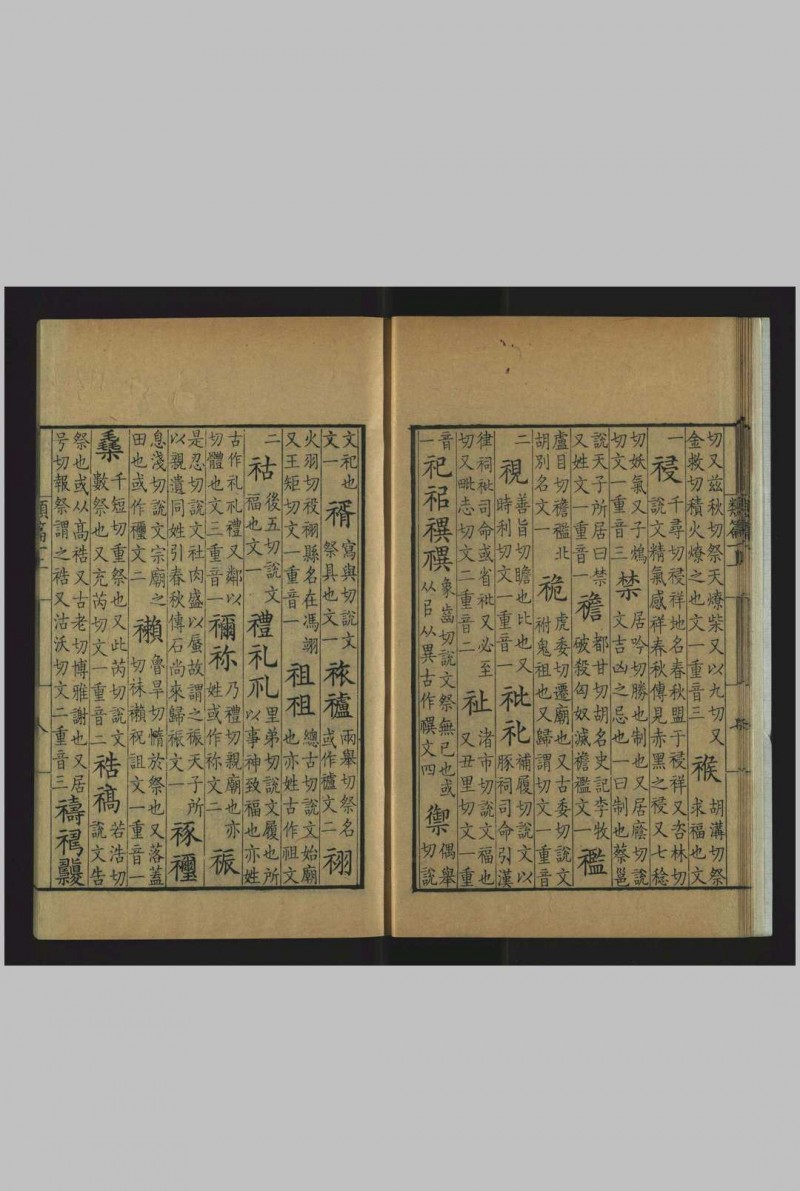 切又兹秋切祭天燎柴又以九切又
金救切積火燎之也文一重音三
胡溝切祭
求福也文
一
祲
千尋切祲祥地名春秋盟于祲祥又咨林切
說文精氣感祥春秋傳見赤黑之祲又七稔
切妖氣又子鴆
切文一重音三
禁
居吟切勝也制也又居廕切說
文吉凶之忌也一曰制也蔡邕
說天子所居曰禁
又姓文一重音一
都甘切胡名史記李牧
破殺匈奴滅襜襤文一
盧目切襜襤北
胡別名文一
祪
虎委切遷廟也又古委切說文
祔鬼祖也又歸謂切文一重音
二
視
善旨切瞻也比也又
時利切文一重音一
補履切說文以
豚祠司命引漢
律祠司命或省又必至
切又毗志切文二重音二
祉
渚市切說文福也
又丑里切文一重
音
一
祀禩
象齒切說文祭無已也或
从㠯从異古作文四
禦
偶舉
切說
文祀也
文一
寫與切說文
祭具也文一
祣
兩舉切祭名
或作文二
祤
火羽切祋祤縣名在馮翊
又王矩切文一重音一
祖
總古切說文始廟
也亦姓古作祖文
二
祜
後五切說文
福也文一
禮礼
里弟切說文履也所
以事神致福也亦姓
古作礼禮又鄰以
切體也文三重音一
禰祢
乃禮切親廟也亦
姓或作祢文二
祳
是忍切說文社肉盛以蜃故謂之祳天子所
以親遺同姓引春秋傳石尚來歸祳文一
息淺切說文宗廟之
田也或作文二
魯旱切惰於祭也又落蓋
切祝詛文一重音一
千短切重祭也又此芮切說文
數祭也又充芮切文一重音二
祰禞
若浩切
說文告
祭也或从高祰又古老切博雅謝也又居
号切報祭謂之祰又沽沃切文二重音三
禱